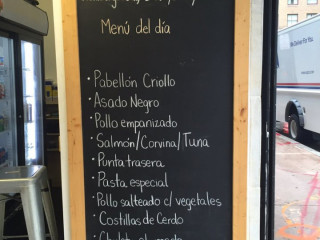 Menú del día
· Pabellón Criollo
· Asado Negro
· Pollo empanizado
· Salmón/Corvina/Tuna
· Punta trasera
· Pasta especial
· Pollo salteado c/ vegetales
· Costillas de Cerdo